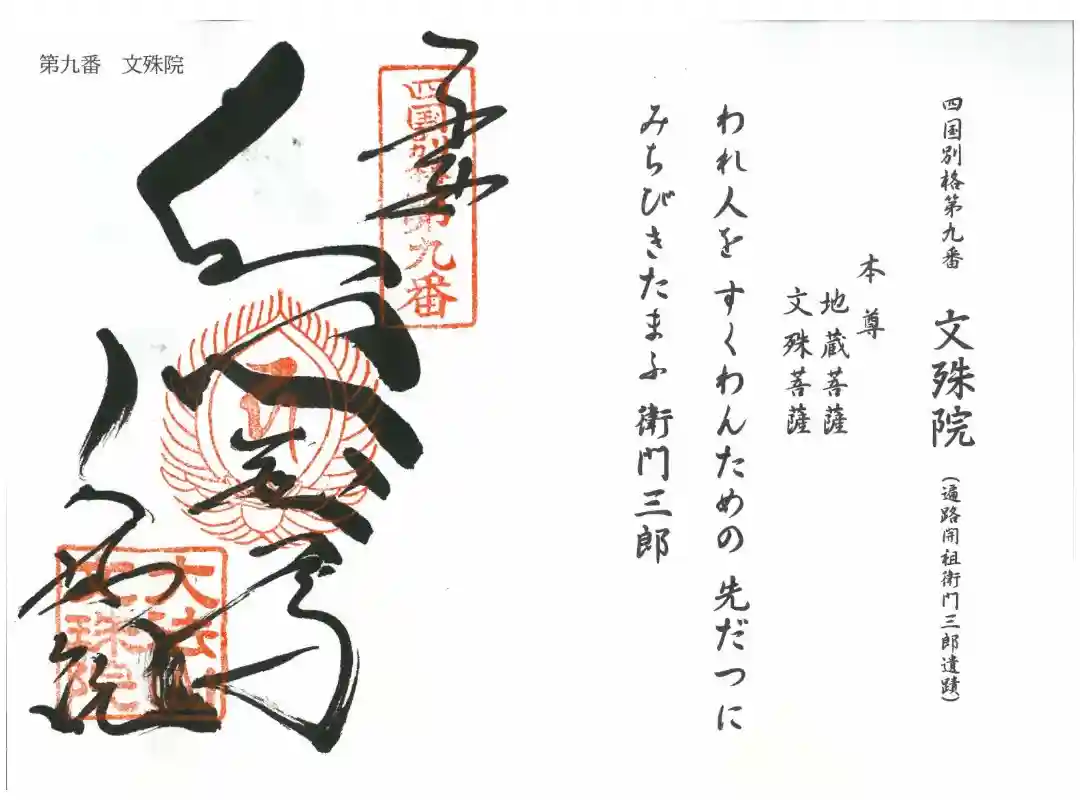 四国別格第九番 文殊院 (遍路開祖衛門三郎遺蹟)
本尊
地蔵菩薩
文殊菩薩
われ人を すくわんための 先だつに
みちびきたまふ 衛門三郎
第九番 文殊院
奉
四国別格第九番
大法山
文殊院
文殊院